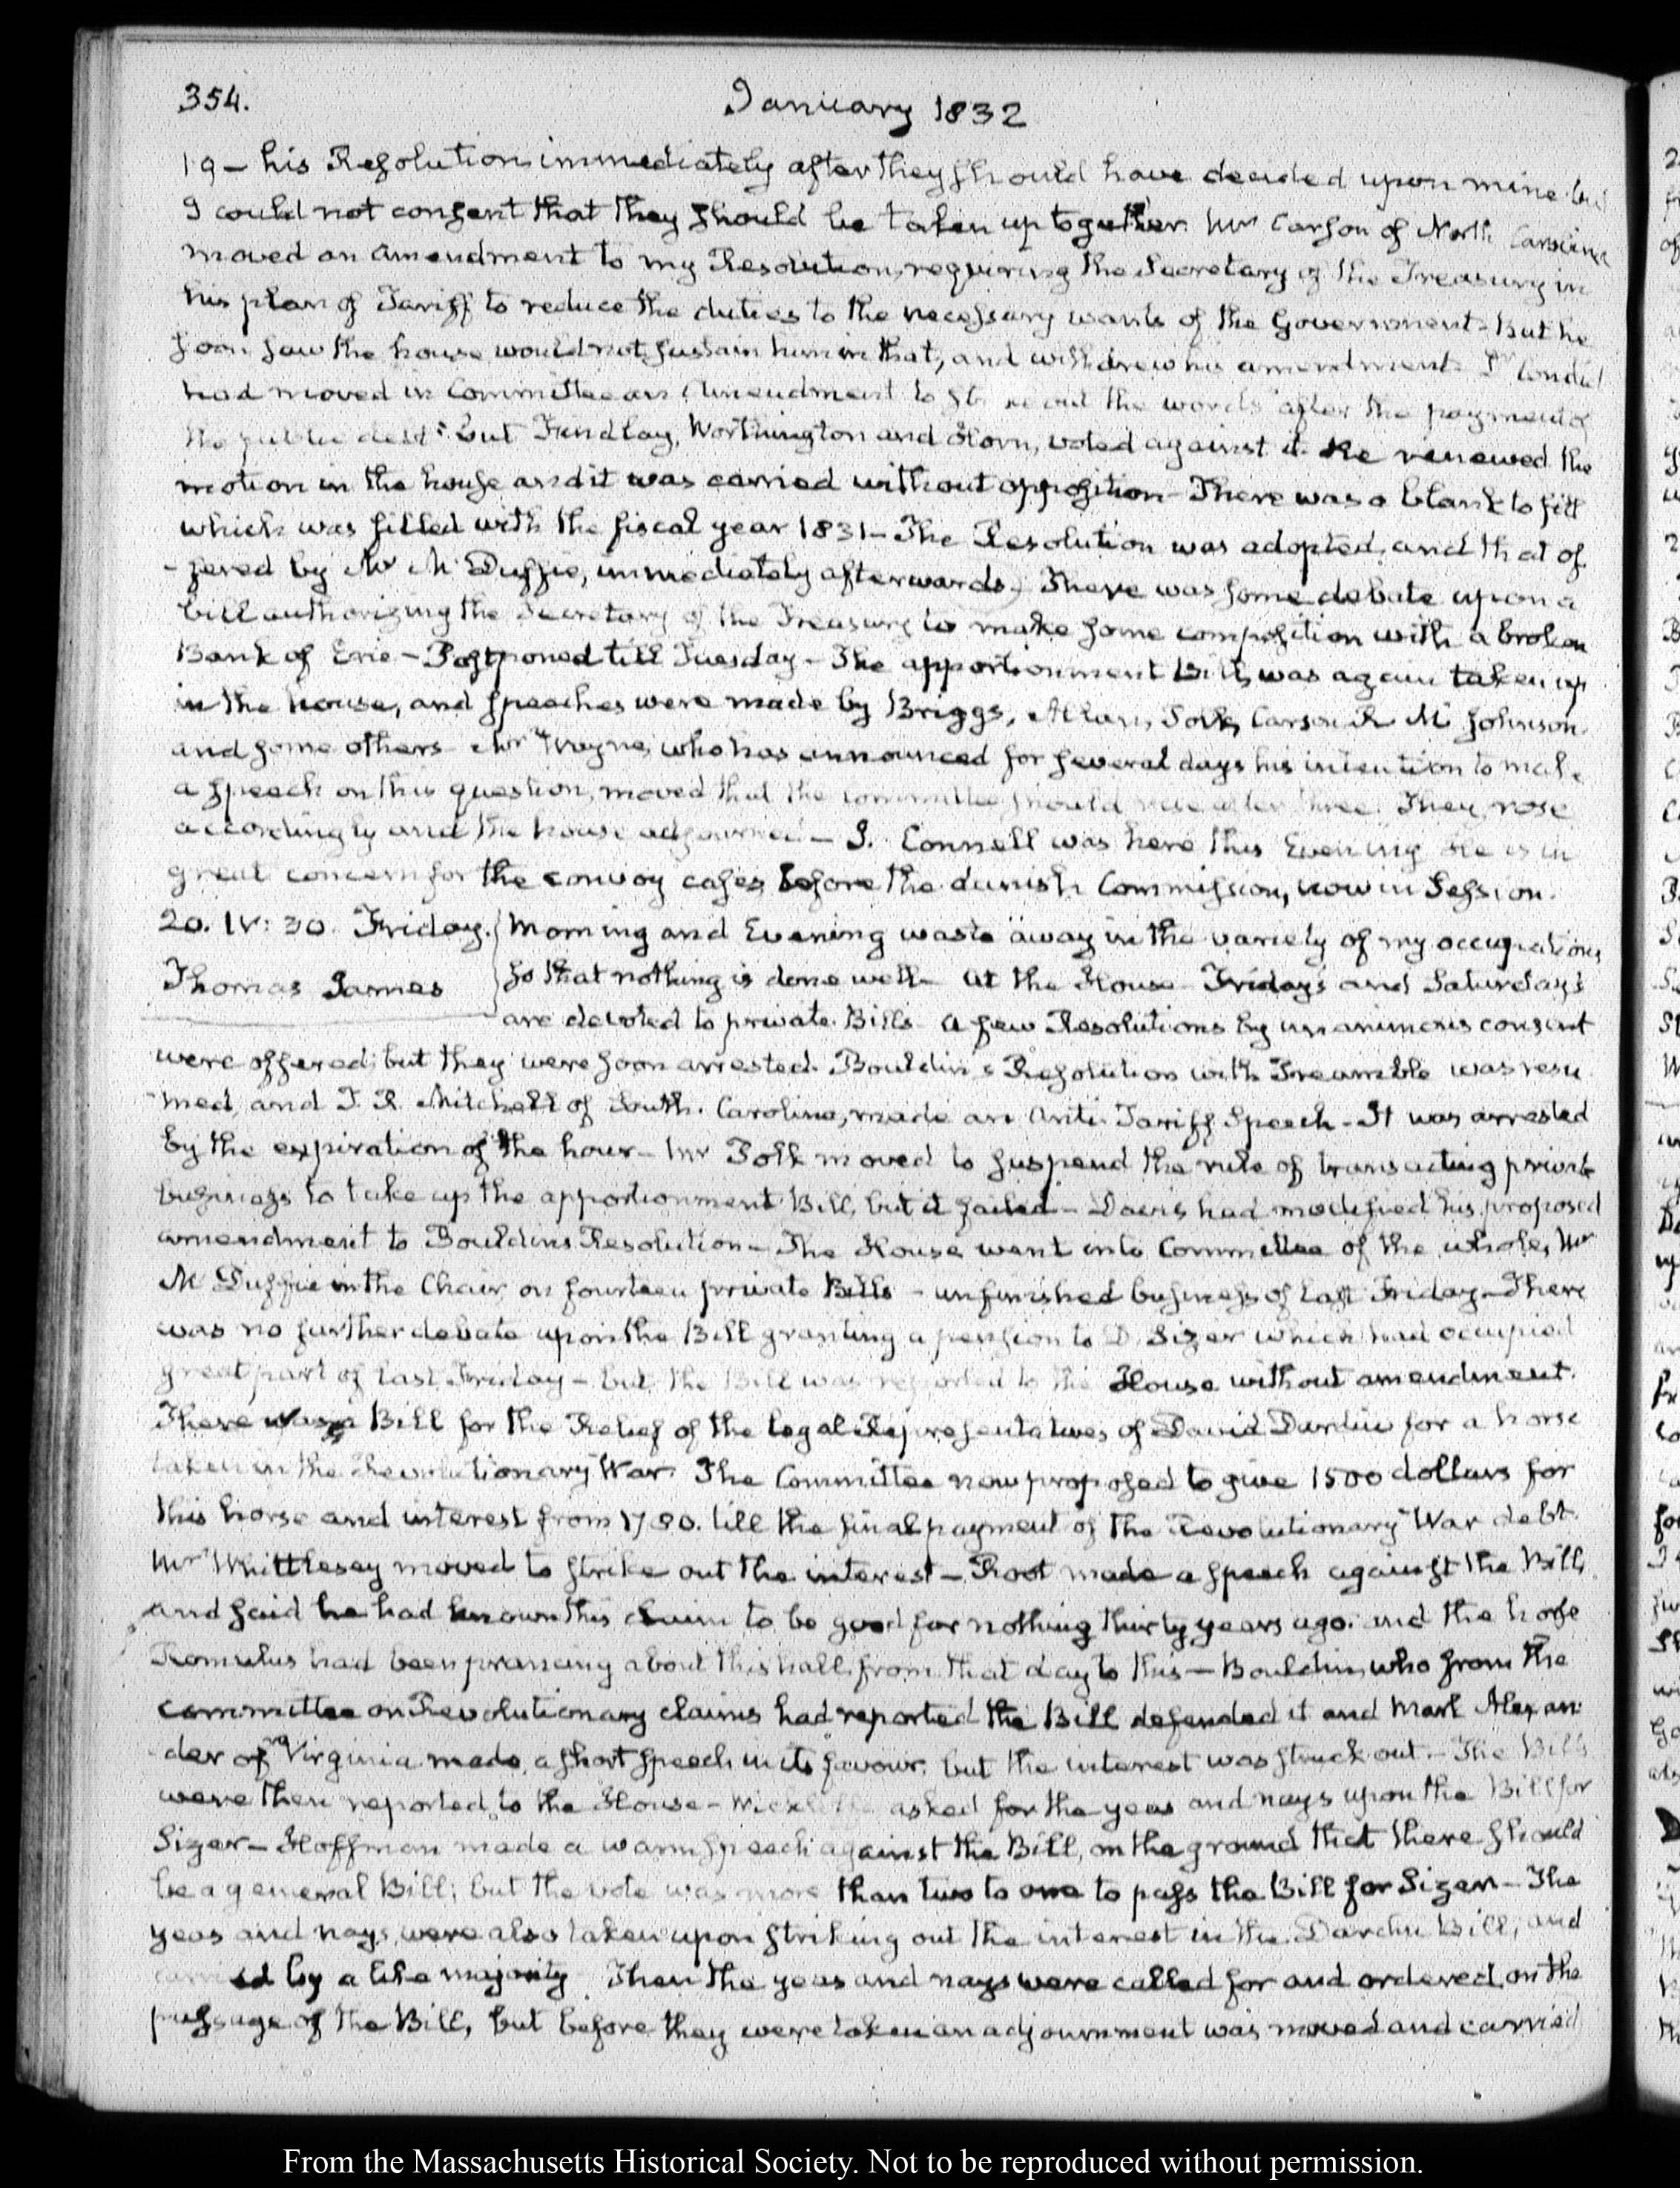 354.
January 1832
19 — his Resolution immediately after they should have decided upon mine but
I could not consent that they should be taken up together. Mr Carson of North Carolina
moved an amendment to my Resolution, requiring the Secretary of the Treasury in
his plan of Tariff to reduce the duties to the necessary wants of the Government - But he
soon saw the house would not sustain him in that, and withdrew his amendment. Dr Condict
had moved in Committee an amendment to strike out the words after the payment of
the public debt: but Findlay, Worthington and Horn, voted against it. He renewed the
motion in the house and it was carried without opposition - There was a blank to fill
which was filled with the fiscal year 1831 - The Resolution was adopted, and that of
-fered by Mr McDuffie, immediately afterwards - There was some debate upon a
bill authorizing the Secretary of the Treasury to make some composition with a broken
Bank of Erie - Postponed till Tuesday - The apportionment Bill, was again taken up
in the house, and speeches were made by Briggs, Allan, Polk, Carson R. M. Johnson
and some others Mr Wayne, who has announced for several days his intention to make
a speech on this question, moved that the committee should rise after three. They rose
accordingly and the house adjourned - J. Connell was here this Evening He is in
great concern for the convoy cases before the danish Commission, now in Session.
20. IV: 30. Friday. Morning and Evening waste away in the variety of my occupations
Thomas James so that nothing is done well - At the House - Friday's and Saturday's
are devoted to private Bills - A few Resolutions by unanimous consent
were offered; but they were soon arrested. Bouldin's Resolution with Preamble was resu
med, and T. R. Mitchell of South Carolina, made an Anti-Tariff Speech - It was arrested
by the expiration of the hour - Mr Polk moved to suspend the rule of transacting private
business to take up the apportionment Bill, but it failed - Davis had modified his proposed
amendment to Bouldins Resolution - The House went into Committee of the whole, Mr
McDuffie in the Chair, on fourteen private Bills - unfinished business of last Friday - There
was no further debate upon the Bill granting a pension to D. Sizer which had occupied
great part of last Friday - but the Bill was reported to the House without amendment.
There was a Bill for the Relief of the legal Representatives of David Dardin for a horse
taken in the Revolutionary War. The Committee now proposed to give 1500 dollars for
this horse and interest from 1780. till the final payment of the Revolutionary War debt.
Mr Whittlesey moved to strike out the interest - Root made a speech against the Bill,
and said he had known this claim to be good for nothing thirty years ago. and the horse
Romulus had been prancing about this hall from that day to this — Bouldin, who from the
committee on Revolutionary claims had reported the Bill defended it and Mark Alexan
der of Virginia made, a short speech in its favour; but the interest was struck out. - The Bills
were then reported to the House - Wickliffe asked for the yeas and nays upon the Bill for
Sizer - Hoffman made a warm speech against the Bill, on the ground that there should
be a general Bill; but the vote was more than two to one to pass the Bill for Sizer - The
yeas and nays, were also taken upon striking out the interest in the Dardin Bill, and
carried by a like majority. Then the yeas and nays were called for and ordered, on the
passage of the Bill, but before they were taken an adjournment was moved and carried
From the Massachusetts Historical Society. Not to be reproduced without permission.